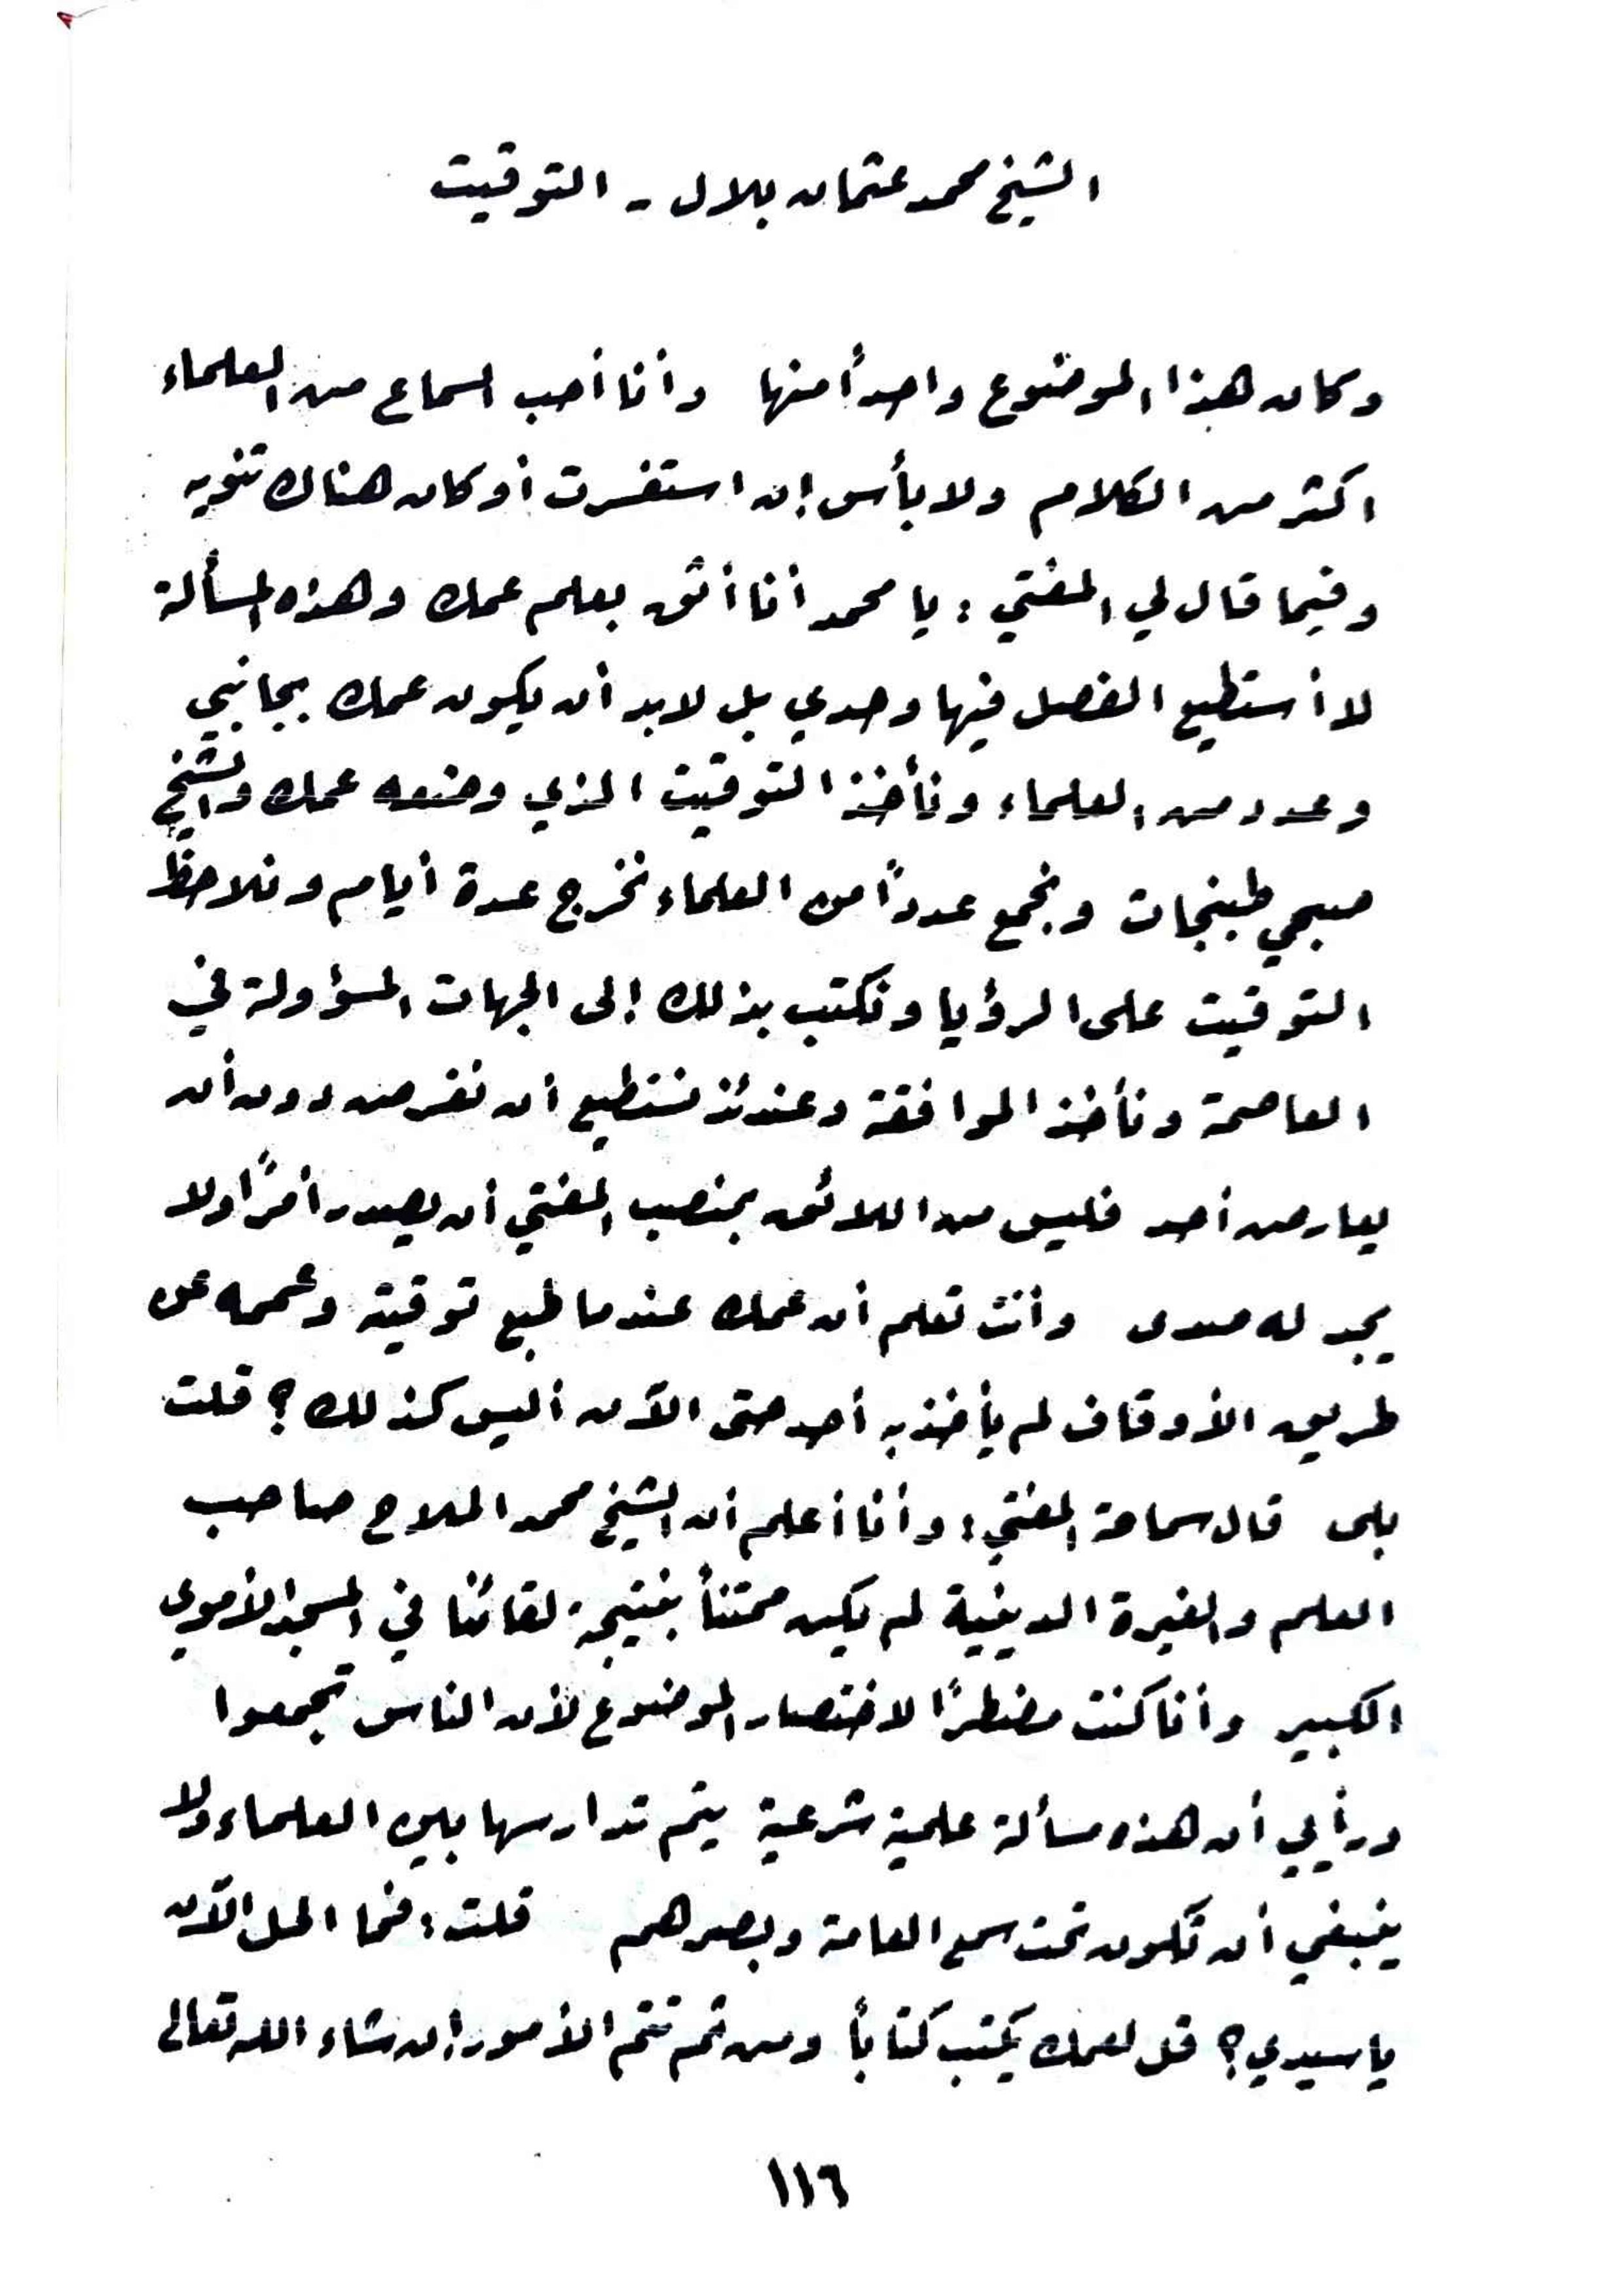 الشيخ محمد عثمان بلال - التوقيت
وكان هذا الموضوع واحداً منها وأنا أحب السماع من العلماء
اكثر من الكلام ولا بأس إن استفسرت أو كان هناك تنويه
وفيما قال لي المفتي : يا محمد أنا أثق بعلم عمك وهذه المسألة
لا أستطيع الفصل فيها وحدي بل لابد أن يكون عمك بجانبي
وعدد من العلماء ونأخذ التوقيت الذي وضعه عمك والشيخ
صبحي طبنجات ونجمع عدداً من العلماء نخرج عدة أيام ونلاحظ
التوقيت على الرؤيا ونكتب بذلك إلى الجهات المسؤولة في
العاصمة ونأخذ الموافقة وعندئذ نستطيع أن نفرض دون أن
يعارض أحد فليس من اللائق بمنصب المفتي أن يصدر أمرًا ولا
يجد له صدى وأنت تعلم أن عمك عندما طبع توقيته وعممه عن
طريق الأوقاف لم يأخذ به أحد حتى الآن أليس كذلك؟ قلت
بلى قال سماحة المفتي : وأنا أعلم أن الشيخ محمد الملاح صاحب
العلم والغيرة الدينية لم يكن ممتناً بنتيجة لقائنا في المسجد الأموي
الكبير وأنا كنت مضطرًا لاختصار الموضوع لأن الناس تجمعوا
ورأيي أن هذه مسألة علمية شرعية يتم تدارسها بين العلماء ولا
ينبغي أن تكون تحت سمع العامة وبصرهم قلت : فما الحل الآن
يا سيدي؟ قل لعمك يكتب كتاباً ومن ثم تتم الأمور إن شاء الله تعالى
١١٦